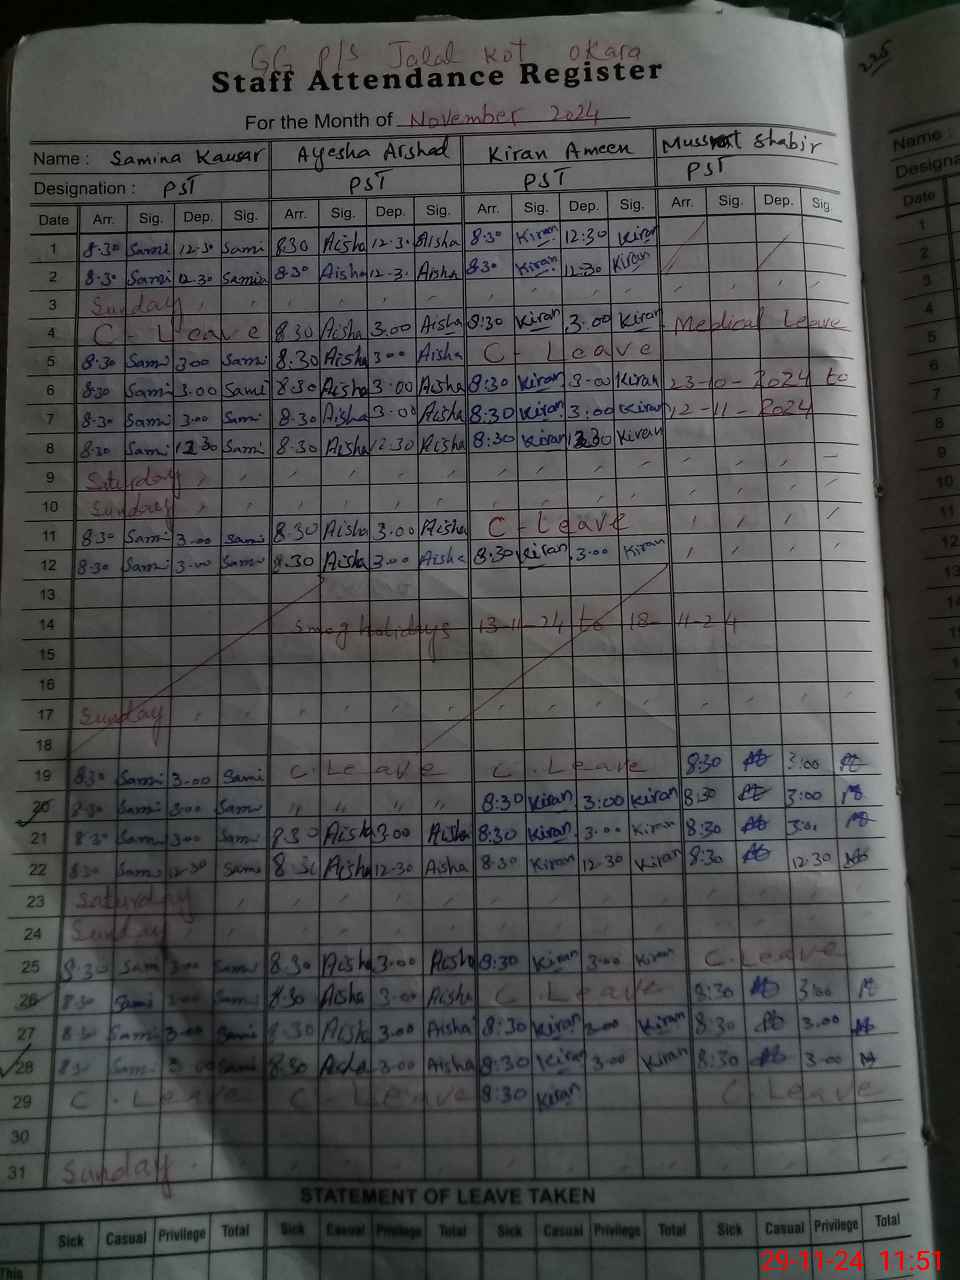 GG P/S Jalal kot okara
Staff Attendance Register
225
For the Month of November 2024
Name : Samina Kausar Ayesha Arshad Kiran Ameen Mussrat Shabir
Designation : PST PST PST PST
Date Arr. Sig. Dep. Sig. Arr. Sig. Dep. Sig. Arr. Sig. Dep. Sig. Arr. Sig. Dep. Sig.
1 8-30 Sami 12-30 Sami 8:30 Aisha 12-30 Aisha 8:30 Kiran 12:30 Kiran
2 8-30 Sami 12-30 Sami 8:30 Aisha 12-3. Aisha 8:30 Kiran 12:30 Kiran
3 Sunday
4 C - Leave 8:30 Aisha 3.00 Aisha 8:30 Kiran 3:00 Kiran Medical Leave
5 8:30 Sami 3.00 Sami 8:30 Aisha 3.00 Aisha C - Leave
6 8:30 Sami 3.00 Sami 8:30 Aisha 3.00 Aisha 8:30 Kiran 3-00 Kiran 23-10-2024 to
7 8-30 Sami 3.00 Sami 8-30 Aisha 3.00 Aisha 8:30 Kiran 3:00 Kiran 12-11-2024
8 8-30 Sami 12 30 Sami 8-30 Aisha 12.30 Aisha 8:30 Kiran 12 30 Kiran
9 Saturday
10 Sunday
11 8:30 Sami 3.00 Sami 8:30 Aisha 3.00 Aisha C - Leave
12 8-30 Sami 3-00 Sami 8:30 Aisha 3.00 Aisha 8:30 Kiran 3.00 Kiran
13
14 Smog holidays 13-11-24 to 18-11-24
15
16
17 Sunday
18
19 8:30 Sami 3.00 Sami C. Leave C. Leave 8:30 3:00
20 8:30 Sami 3:00 Sami " " " " 8:30 Kiran 3:00 Kiran 8:30 3:00
21 8:30 Sami 3.00 Sami 8:30 Aisha 3.00 Aisha 8:30 Kiran 3.00 Kiran 8:30 3:00
22 8:30 Sami 12-30 Sami 8:30 Aisha 12-30 Aisha 8:30 Kiran 12-30 Kiran 8:30 12:30
23 Saturday
24 Sunday
25 8:30 Sami 3.00 Sami 8:30 Aisha 3.00 Aisha 8:30 Kiran 3.00 Kiran C. Leave
26 8:30 Sami 3.00 Sami 8:30 Aisha 3.00 Aisha C. Leave 8:30 3:00
27 8:30 Sami 3.00 Sami 8:30 Aisha 3.00 Aisha 8:30 Kiran 3.00 Kiran 8:30 3.00
28 8:30 Sami 3.00 Sami 8:30 Aisha 3.00 Aisha 8:30 Kiran 3.00 Kiran 8:30 3.00
29 C. Leave C - Leave 8:30 Kiran C. Leave
30
31 Sunday
STATEMENT OF LEAVE TAKEN
Sick Casual Privilege Total Sick Casual Privilege Total Sick Casual Privilege Total Sick Casual Privilege Total
This
Name :
Designa
Date
1
2
3
4
5
6
7
8
9
10
11
12
13
29-11-24 11:51